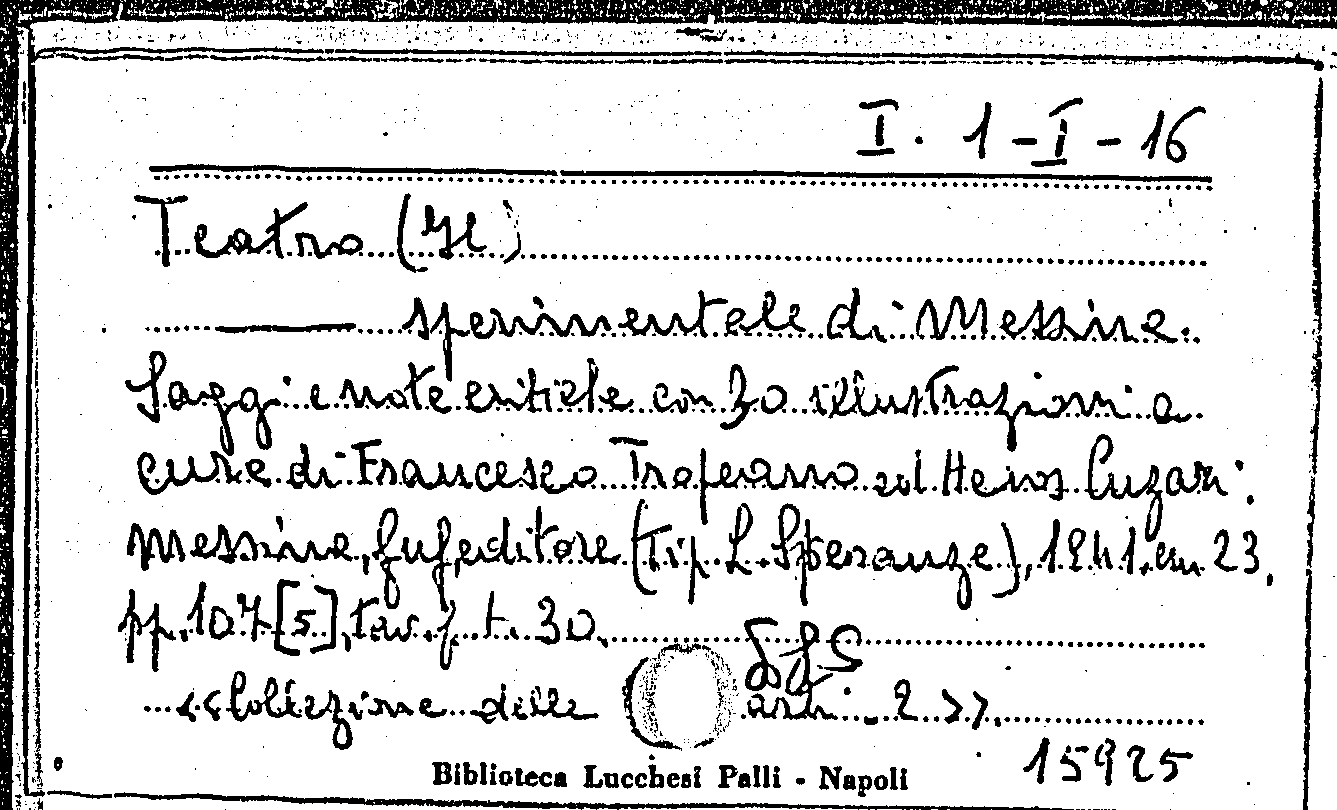 I. 1 - I - 16
Teatro (Il)
—— sperimentale di Messina.
Saggi e note critiche con 30 illustrazioni a
cura di Francesco Troperano ed Heros Cuzari.
Messina, editore (Tip. L. Speranza), 1941. cm 23,
pp. 107 [5], tav. f. t. 30.
«Collezione delle arti. 2».
15925
Biblioteca Lucchesi Palli - Napoli